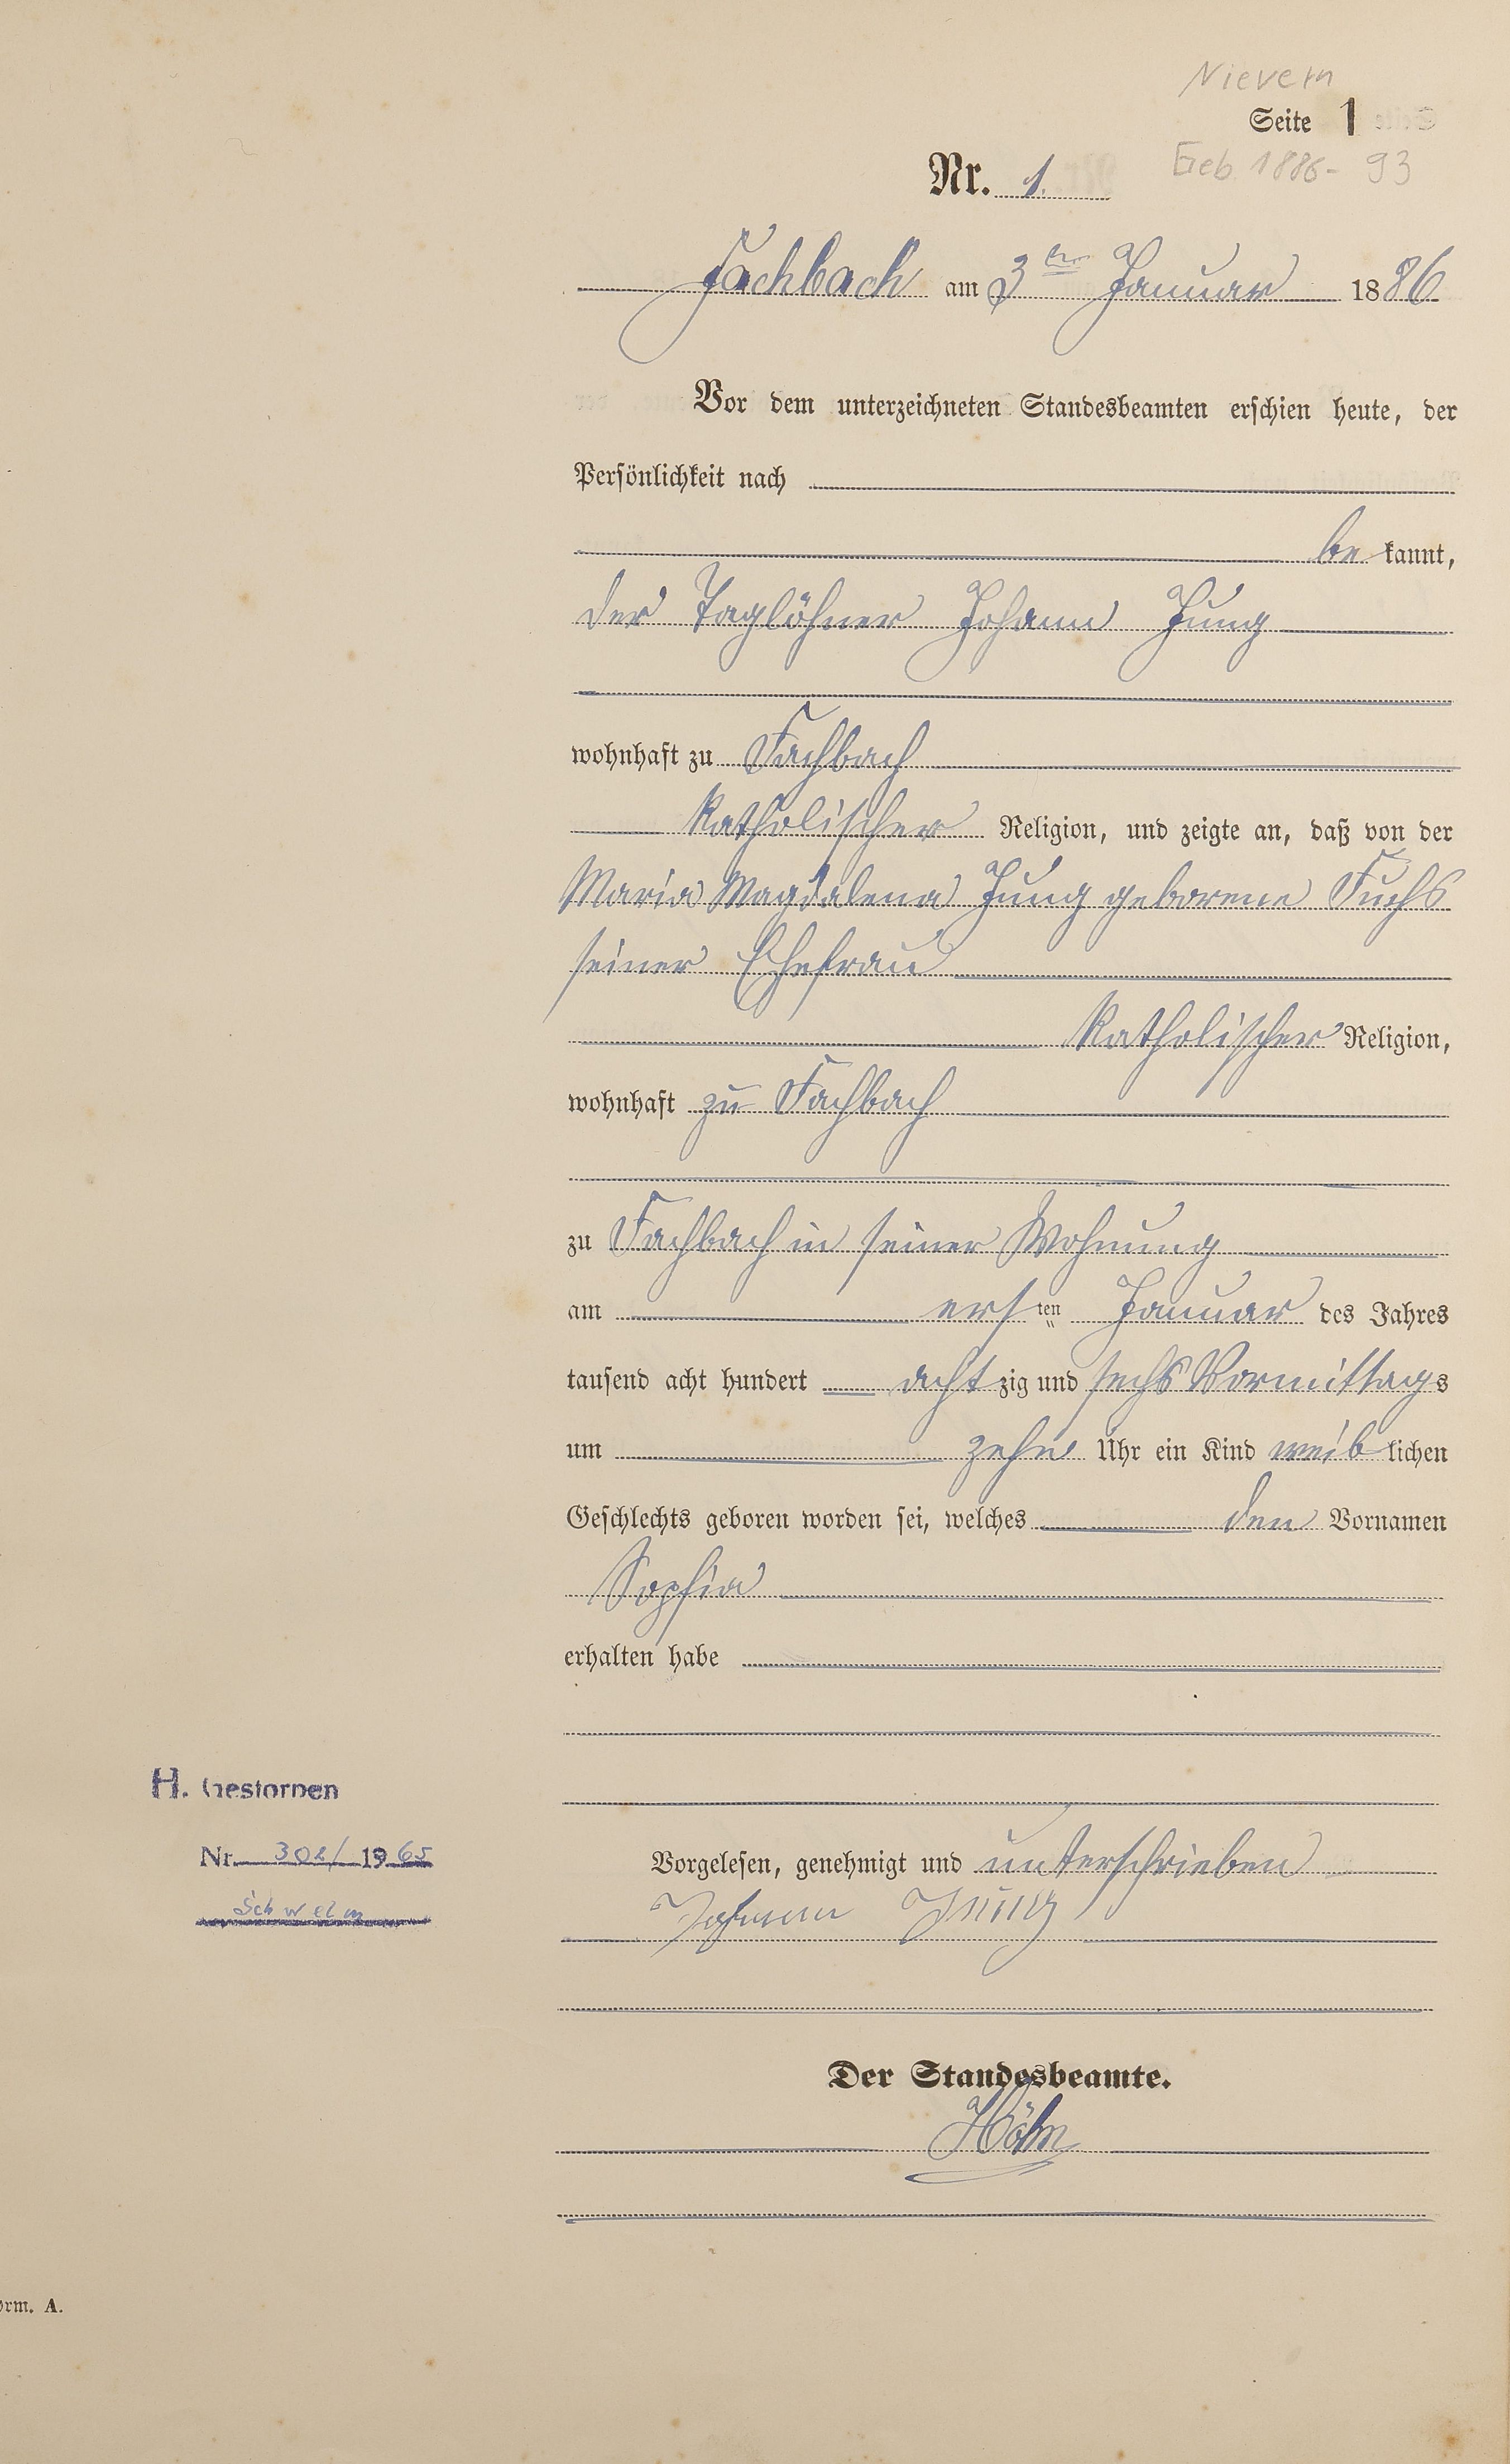 Nievern
Seite 1
Geb. 1886-93
Nr. 1.
Fachbach am 3ten Januar 1886
Vor dem unterzeichneten Standesbeamten erschien heute, der
Persönlichkeit nach
be kannt,
der Taglöhner Johann Jung
wohnhaft zu Fachbach
katholischer Religion, und zeigte an, daß von der
Maria Magdalena Jung geborene Fuchs
seiner Ehefrau
katholischer Religion,
wohnhaft zu Fachbach
zu Fachbach in seiner Wohnung
am ersten Januar des Jahres
tausend acht hundert achtzig und sechs Vormittags
um zehn Uhr ein Kind weiblichen
Geschlechts geboren worden sei, welches den Vornamen
Sophia
erhalten habe
H. Gestorben
Nr. 302/1965
Schwelm
Vorgelesen, genehmigt und unterschrieben
Johann Jung
Der Standesbeamte.
Höhn
orm. A.